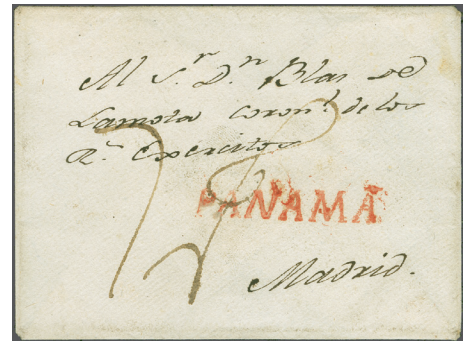 Al S.r D.n Blas de
Lamota Coron.l de los
R.s Exercitos
PANAMÁ
Madrid.